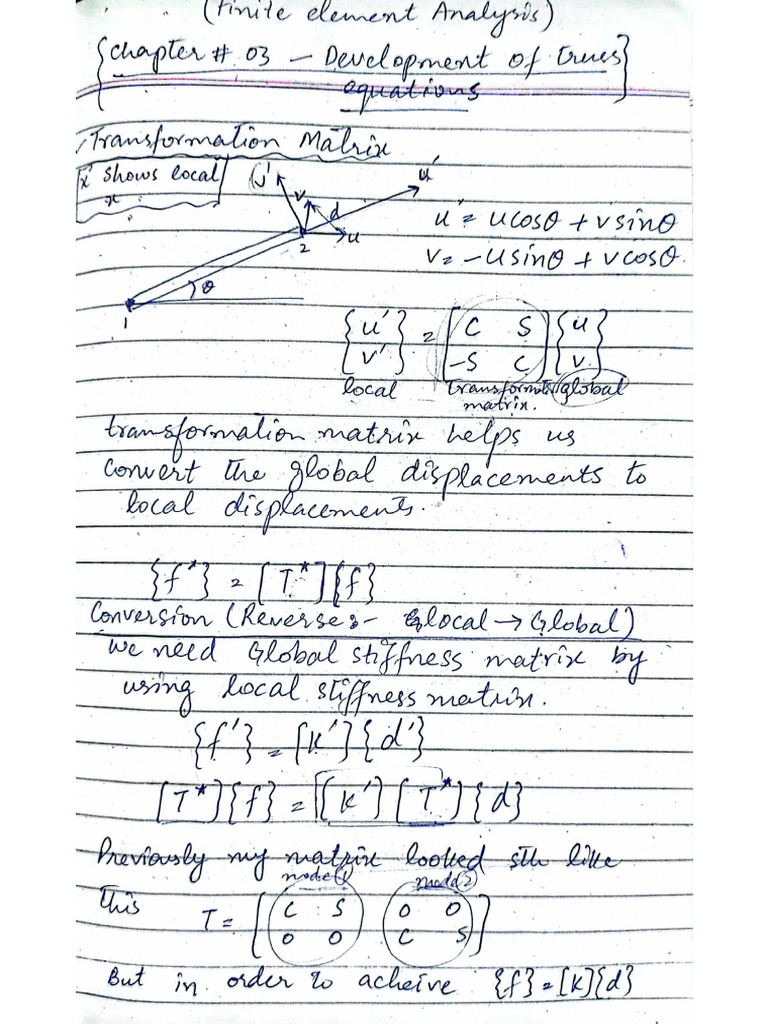 (Finite element Analysis)
{chapter # 03 – Development of truss
equations}
Transformation Matrix
x' shows local
x
v' u'
v d
u
2
θ
1
u' = u cosθ + v sinθ
v = -u sinθ + v cosθ.
{u' v'} = [C S -S C] {u v}
local transformation matrix. global
transformation matrix helps us
convert the global displacements to
local displacements.
{f*} = [T*]{f}
Conversion (Reverse:- local → Global)
we need Global stiffness matrix by
using local stiffness matrix.
{f'} = [k']{d'}
[T*]{f} = [k'] [T*]{d}
Previously my matrix looked sth like
node(1) node(2)
this T = [C S 0 0
0 0 C S]
But in order to acheive {f} = [K]{d}